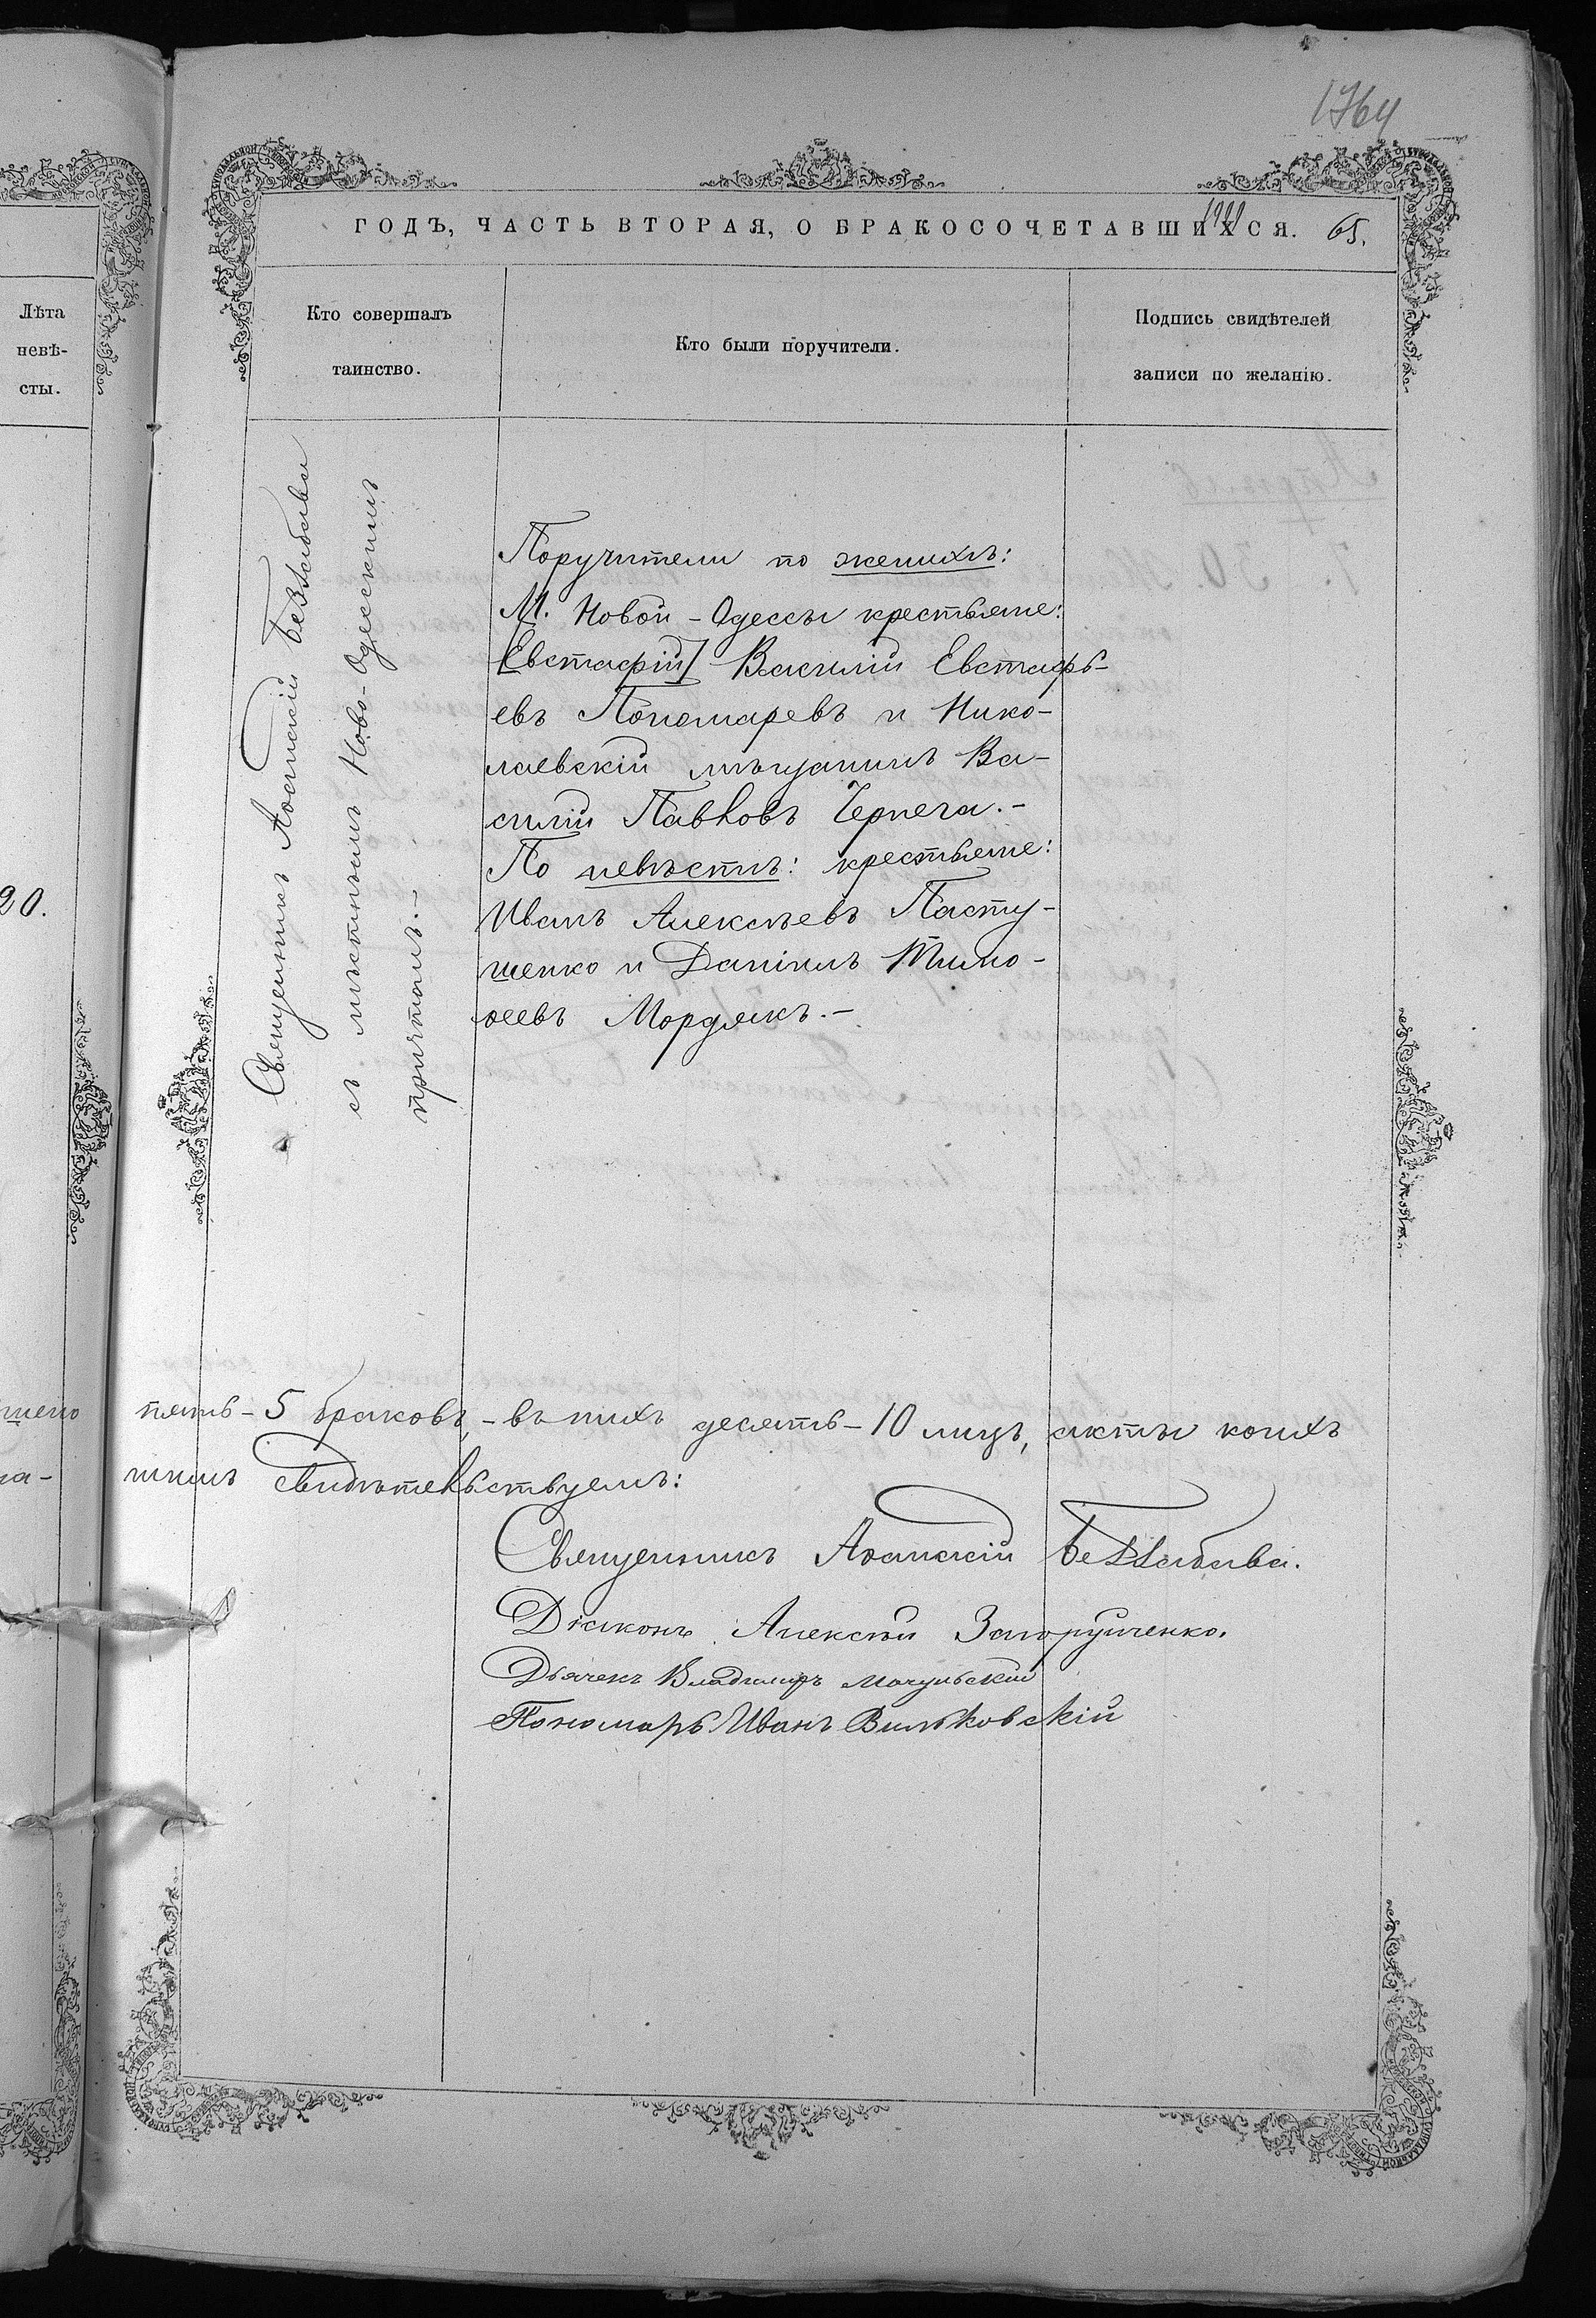 1764
ГОДЪ, ЧАСТЬ ВТОРАЯ, О БРАКОСОЧЕТАВШИХСЯ. 65.
Лѣта
невѣ-
сты.
Кто совершалъ
таинство.
Кто были поручители.
Подпись свидѣтелей
записи по желанію.
20.
Священникъ Аѳанасій Беззабава
съ мѣстнымъ Ново-Одесскимъ
причтомъ.-
Поручители по женихѣ:
М. Новой-Одессы крестьяне:
[Евстафій] Василій Евстафь-
евъ Пономаревъ и Нико-
лаевскій мѣщанинъ Ва-
силій Павловъ Чернега.-
По невѣстѣ: крестьяне:
Иванъ Алексѣевъ Пасту-
шенко и Даніилъ Тимо-
ѳеевъ Мордякъ.-
шено пять-5 браковъ,-въ нихъ десять-10 лицъ, акты коихъ
на- шимъ свидѣтельствуемъ:
Священникъ Аѳанасій Беззабава.
Діаконъ Алексѣй Запорушенко.
Дьячекъ Владиміръ Мачульскій
Пономарь Иванъ Вильковскій